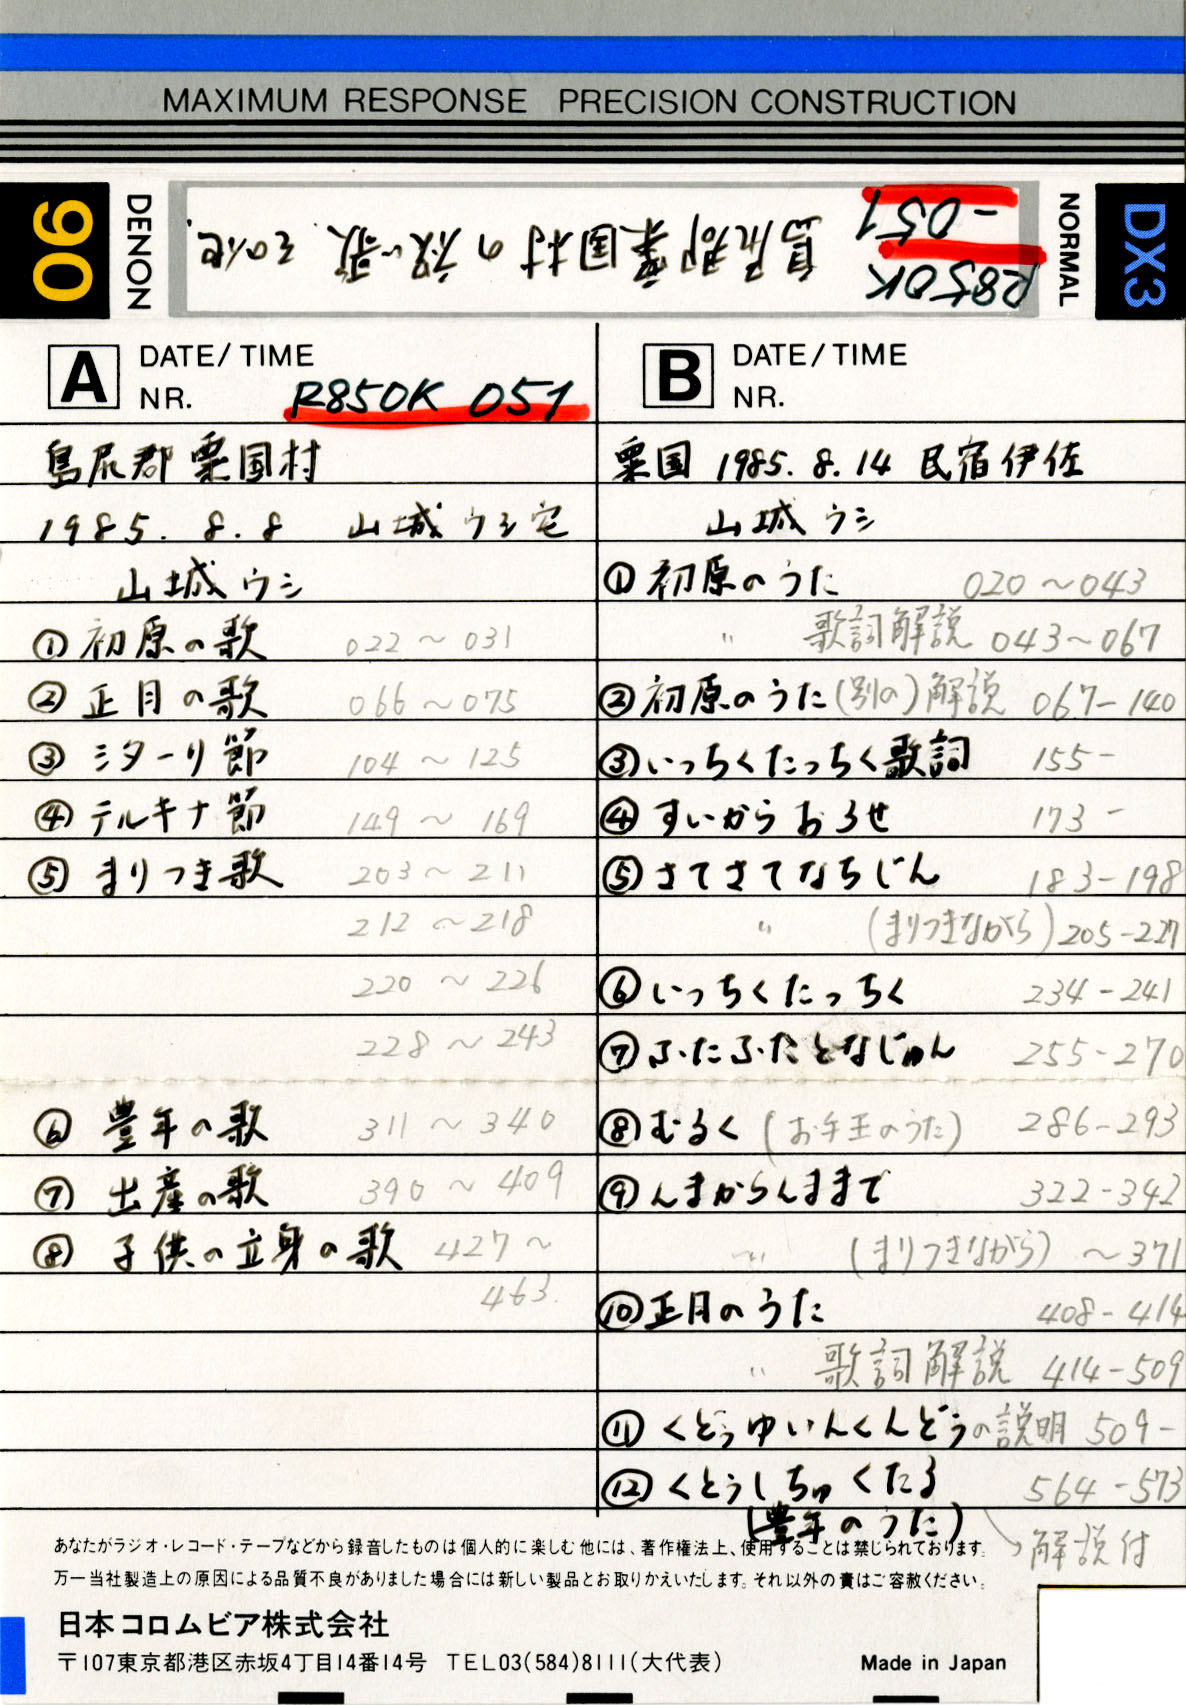 MAXIMUM RESPONSE PRECISION CONSTRUCTION
90
DENON
島尻郡粟国村の祝い歌 その他.
R850K
-051
NORMAL
DX3
A DATE/TIME
NR. R850K 051
島尻郡 粟国村
1985. 8. 8 山城ウシ宅
山城ウシ
① 初原の歌 022〜031
② 正月の歌 066〜075
③ ミターリ節 104〜125
④ テルキナ節 149〜169
⑤ まりつき歌 203〜211
212〜218
220〜226
228〜243
⑥ 豊年の歌 311〜340
⑦ 出産の歌 390〜409
⑧ 子供の立身の歌 427〜
463.
B DATE/TIME
NR.
粟国 1985. 8. 14 民宿伊佐
山城ウシ
① 初原のうた 020〜043
〃 歌詞解説 043〜067
② 初原のうた(別の)解説 067-140
③ いっちくたっちく歌詞 155-
④ すいからおろせ 173-
⑤ さてさてなちじん 183-198
〃 (まりつきながら) 205-227
⑥ いっちくたっちく 234-241
⑦ ふたふたとなじゅん 255-270
⑧ むるく(お手玉のうた) 286-293
⑨ んまからんままで 322-342
〃 (まりつきながら) 〜371
⑩ 正月のうた 408-414
〃 歌詞解説 414-509
⑪ くとぅゆいんくんどぅの説明 509-
⑫ くとぅしちゅくたる 564-573
(豊年のうた)
解説付
あなたがラジオ・レコード・テープなどから録音したものは個人的に楽しむ他には、著作権法上、使用することは禁じられております。
万一当社製造上の原因による品質不良がありました場合には新しい製品とお取りかえいたします。それ以外の責はご容赦ください。
日本コロムビア株式会社
〒107東京都港区赤坂4丁目14番14号 TEL03(584)8111(大代表)
Made in Japan